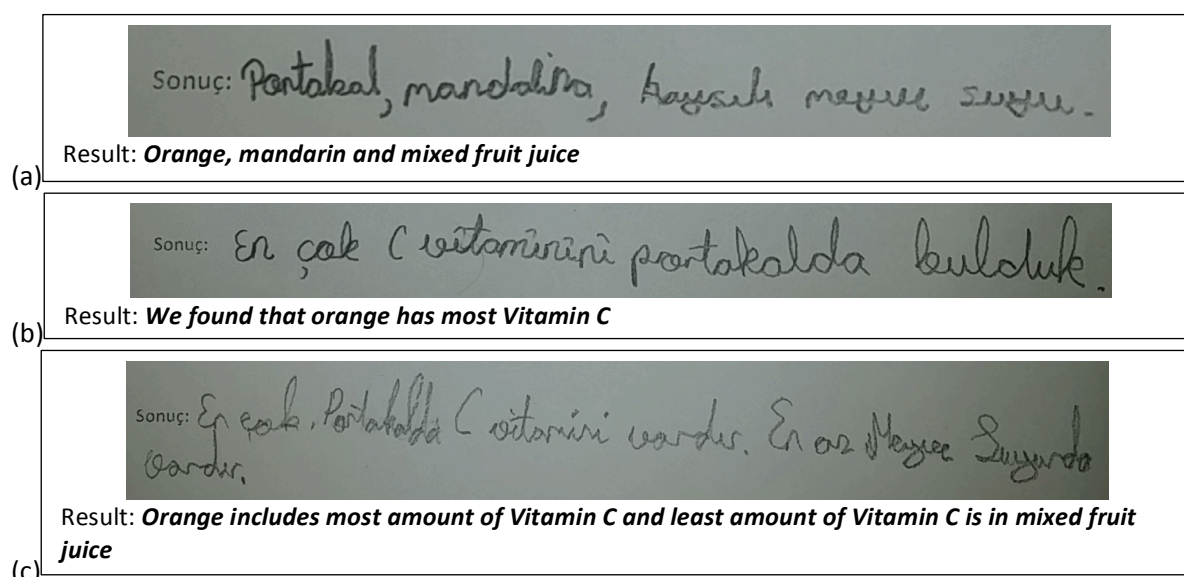 Sonuç: Portakal, mandalina, karışık meyve suyu.
Result: Orange, mandarin and mixed fruit juice
(a)
Sonuç: En çok C vitaminini portakalda bulduk.
Result: We found that orange has most Vitamin C
(b)
Sonuç: En çok Portakalda C vitamini vardır. En az Meyve Suyunda
vardır.
Result: Orange includes most amount of Vitamin C and least amount of Vitamin C is in mixed fruit
juice
(c)